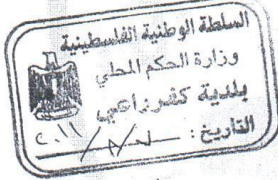 السلطة الوطنية الفلسطينية
وزارة الحكم المحلي
بلدية كفرراعي
التاريخ : / / ٢٠١١